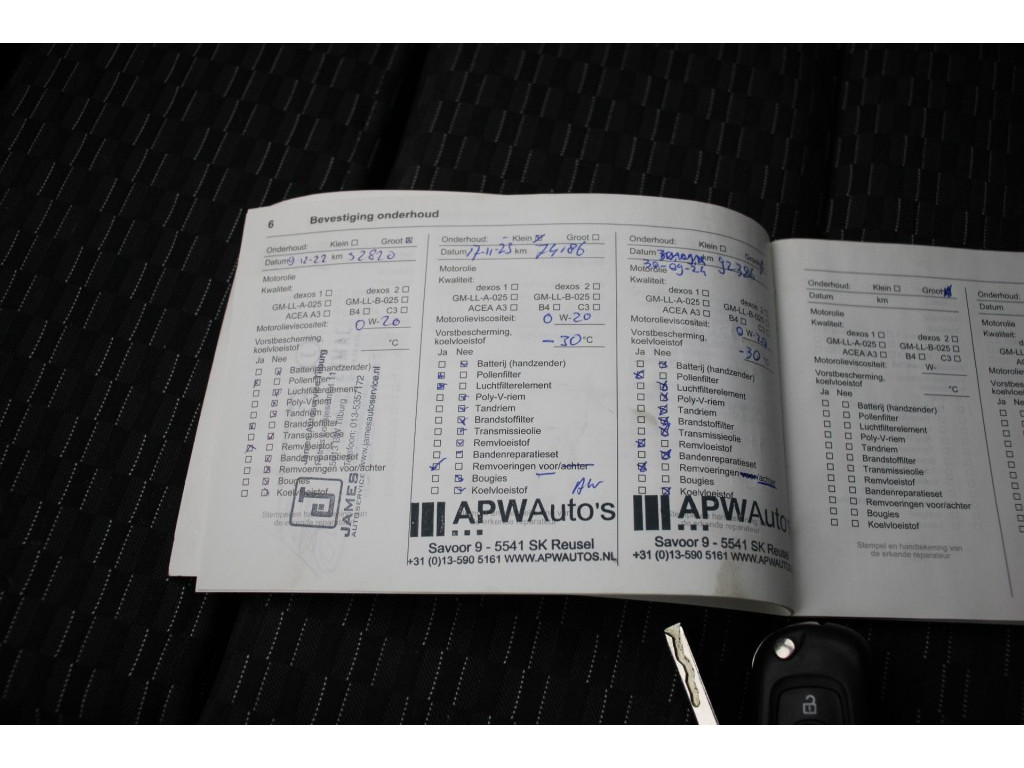 6 Bevestiging onderhoud
Onderhoud: Klein Groot
Datum 9-12-22 km 52820
Motorolie
Kwaliteit:
dexos 1 dexos 2
GM-LL-A-025 GM-LL-B-025
ACEA A3 B4 C3
Motorolieviscositeit: 0 W-20
Vorstbescherming,
koelvloeistof °C
Ja Nee
Batterij (handzender)
Pollenfilter
Luchtfilterelement
Poly-V-riem
Tandriem
Brandstoffilter
Transmissieolie
Remvloeistof
Bandenreparatieset
Remvoeringen voor/achter
Bougies
Koelvloeistof
JAMES
AUTOSERVICE
Tilburg
Telefoon: 013-5357172
www.jamesautoservice.nl
Onderhoud: Klein Groot
Datum 17-11-23 km 74186
Motorolie
Kwaliteit:
dexos 1 dexos 2
GM-LL-A-025 GM-LL-B-025
ACEA A3 B4 C3
Motorolieviscositeit: 0 W-20
Vorstbescherming,
koelvloeistof -30 °C
Ja Nee
Batterij (handzender)
Pollenfilter
Luchtfilterelement
Poly-V-riem
Tandriem
Brandstoffilter
Transmissieolie
Remvloeistof
Bandenreparatieset
Remvoeringen voor/achter
Bougies
Koelvloeistof
AW
APWAuto's
Savoor 9 - 5541 SK Reusel
+31 (0)13-590 5161 WWW.APWAUTOS.NL
Onderhoud: Klein Groot
Datum km 92384
30-09-24
Motorolie
Kwaliteit:
dexos 1 dexos 2
GM-LL-A-025 GM-LL-B-025
ACEA A3 B4 C3
Motorolieviscositeit:
0 W-
Vorstbescherming,
koelvloeistof -30
Ja Nee
Batterij (handzender)
Pollenfilter
Luchtfilterelement
Poly-V-riem
Tandriem
Brandstoffilter
Transmissieolie
Remvloeistof
Bandenreparatieset
Remvoeringen voor/achter
Bougies
Koelvloeistof
APWAuto's
Savoor 9 - 5541 SK Reusel
+31 (0)13-590 5161 WWW.APWAUTOS
Onderhoud: Klein Groot
Datum km
Motorolie
Kwaliteit:
dexos 1 dexos 2
GM-LL-A-025 GM-LL-B-025
ACEA A3 B4 C3
Motorolieviscositeit: W-
Vorstbescherming,
koelvloeistof °C
Ja Nee
Batterij (handzender)
Pollenfilter
Luchtfilterelement
Poly-V-riem
Tandriem
Brandstoffilter
Transmissieolie
Remvloeistof
Bandenreparatieset
Remvoeringen voor/achter
Bougies
Koelvloeistof
Stempel en handtekening van
de erkende reparateur